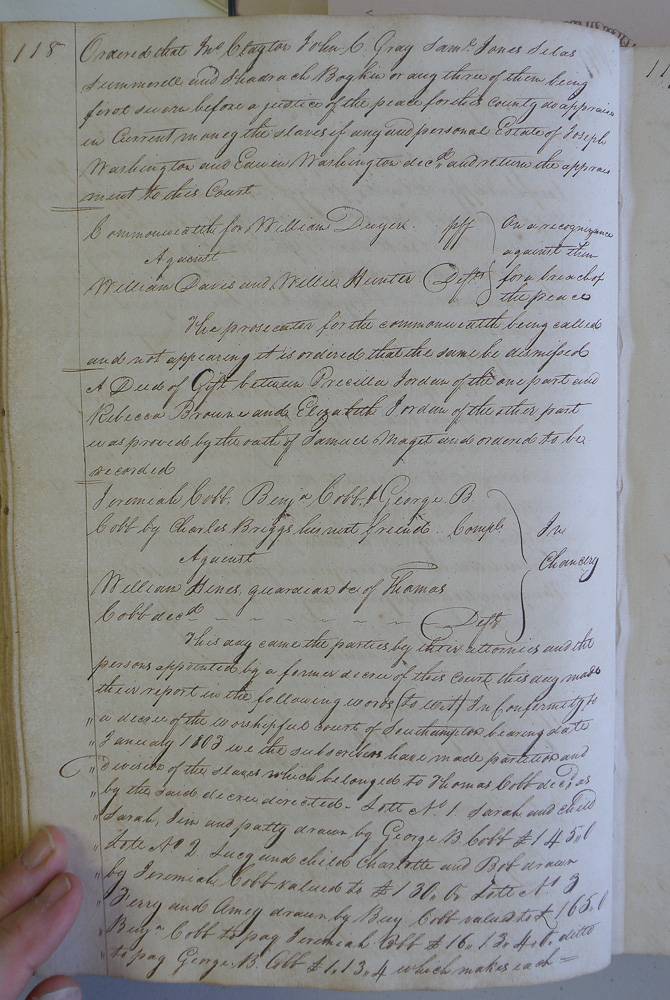 118
Ordered that Jno. Clayton John C. Gray Saml. Jones Silas
Summerell and Shadrach Boykin or any three of them being
first sworn before a justice of the peace for this county do appraise
in Current money the slaves if any and personal Estate of Joseph
Washington and Edwin Washington decd. and return the apprais
ment to this Court
Commonwealth for William Dwyer. plf
Against
William Davis and Willie Hunter Defts
On a recognizance
against them
for a breach of
the peace
The prosecutor for the commonwealth being called
and not appearing it is ordered that the same be dismissed
A Deed of Gift between Precilla Jordan of the one part and
Rebecca Browne and Elizabeth Jordan of the other part
was proved by the oath of Samuel Maget and ordered to be
recorded
Jeremiah Cobb, Benja Cobb, & George B
Cobb by Charles Briggs his next friend. Compl.
Against
William Hines, guardian &c of Thomas
Cobb decd Defts
In
Chancery
This day came the parties by their attornies and the
persons appointed by a former decree of this court this day made
their report in the following words (to wit) In Conformity to
" a decree of the worshipful court of Southampton bearing date
" January 1803 we the subscribers have made partition and
" division of the slaves which belonged to Thomas Cobb decd, as
" by the said decree directed - Lott No. 1 Sarah and child
" Sarah, Jim and patty drawn by George B. Cobb £145,,0
" Lott No 2. Lucy and child Charlotte and Bob drawn
" by Jeremiah Cobb valued to £130,,0. Lott No 3
" Terry and Amey drawn by Benj Cobb valued to £165,,0
" Benja Cobb to pay Jeremiah Cobb £16,,13,,4. ditto
" to pay George B. Cobb £1,,13,,4 which makes each =